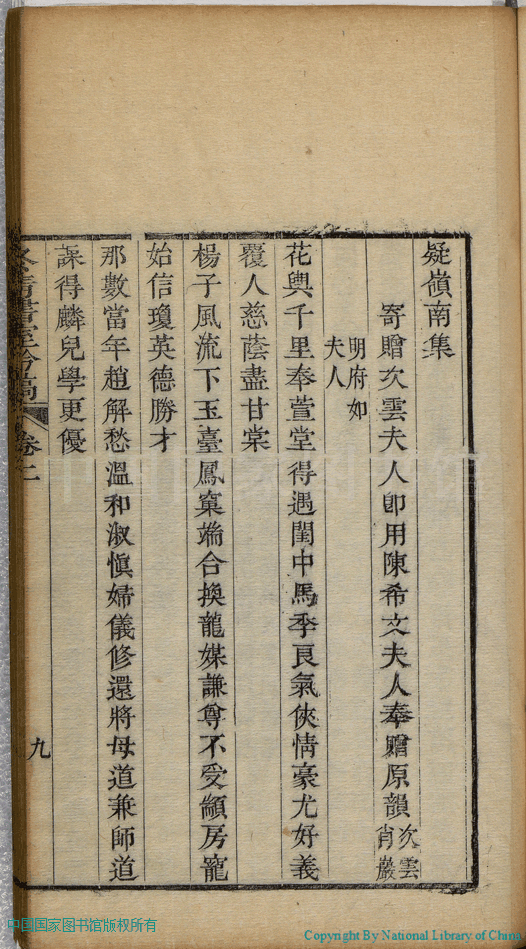 疑嶺南集
寄贈次雲夫人卽用陳希文夫人奉贈原韻次雲肖巖
明府如夫人
花輿千里奉萱堂得遇閨中馬季良氣俠情豪尤好義
覆人慈蔭盡甘棠
楊子風流下玉臺鳳窠端合換龍媒謙尊不受顓房寵
始信瓊英德勝才
那數當年趙解愁溫和淑愼婦儀修還將母道兼師道
課得麟兒學更優
卷二
九
中国国家图书馆版权所有
Copyright By National Library of China